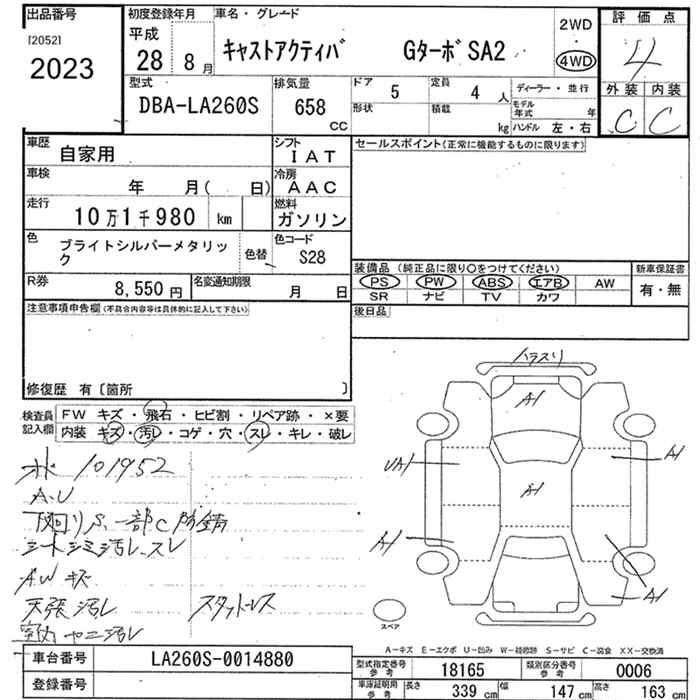 出品番号
[2052]
2023
初度登録年月
平成
28 8 月
車名・グレード
キャストアクティバ GターボSA2
2WD
4WD
評価点
4
外装 内装
C C
型式
DBA-LA260S
排気量
658
CC
ドア 5
定員 4 人
形状
積載 kg
ディーラー・並行
モデル年式 年
ハンドル 左・右
車歴
自家用
シフト
IAT
車検
年 月( 日)
冷房
AAC
走行
10万1千980 km
燃料
ガソリン
色
ブライトシルバーメタリック
色替
色コード
S28
R券
8,550 円
名変通知期限
月 日
セールスポイント(正常に機能するものに限ります)
装備品 (純正品に限り○をつけてください)
PS PW ABS エアB AW
SR ナビ TV カワ
新車保証書
有・無
後日品
注意事項申告欄(不具合内容等は具体的に記入して下さい)
修復歴 有〔箇所 〕
検査員記入欄
FW キズ・飛石・ヒビ割・リペア跡・×要
内装 キズ・汚レ・コゲ・穴・スレ・キレ・破レ
101952
A.U
下回りS.一部C防錆
シートシミ汚レ.スレ
AWキズ
天張汚レ
スタットレス
室内ヤニ汚レ
ハラスリ
A1
A1
UA1
A1
A1
A1
スペア
A-キズ E-エクボ U-凹み W-補修跡 S-サビ C-腐食 XX-交換済
車台番号
LA260S-0014880
登録番号
型式指定番号 参考
18165
類別区分番号 参考
0006
車庫証明用 参考
長さ 339 cm
幅 147 cm
高さ 163 cm